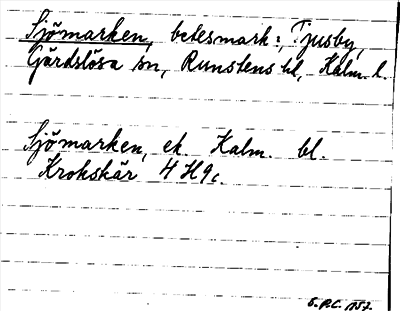 Sjömarken, betesmark:, Tjusby,
Gärdslösa sn, Runstens hd, Kalm. l.
Sjömarken, ek Kalm. bl.
Krokskär 4 H 9 c.
S.P.C. 1957.